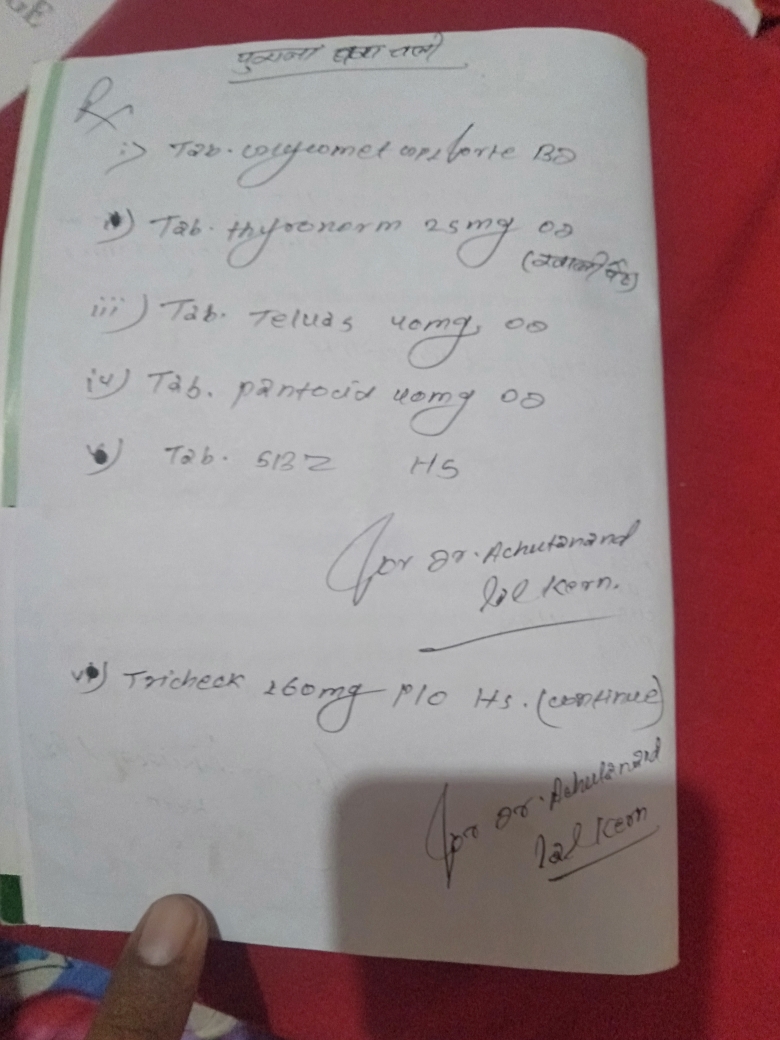 GE
पुराना दवा चले
Rx
i) Tab. Glycomet GP2 forte BD
ii) Tab. thyronorm 25mg OD
(खाली पेट)
iii) Tab. Teluas 40mg OD
iv) Tab. pantocid 40mg OD
v) Tab. SBZ HS
for Dr. Achutanand
lal Kern.
vi) Tricheck 160mg P/O Hs. (continue)
for Dr. Achutanand
lal Kern